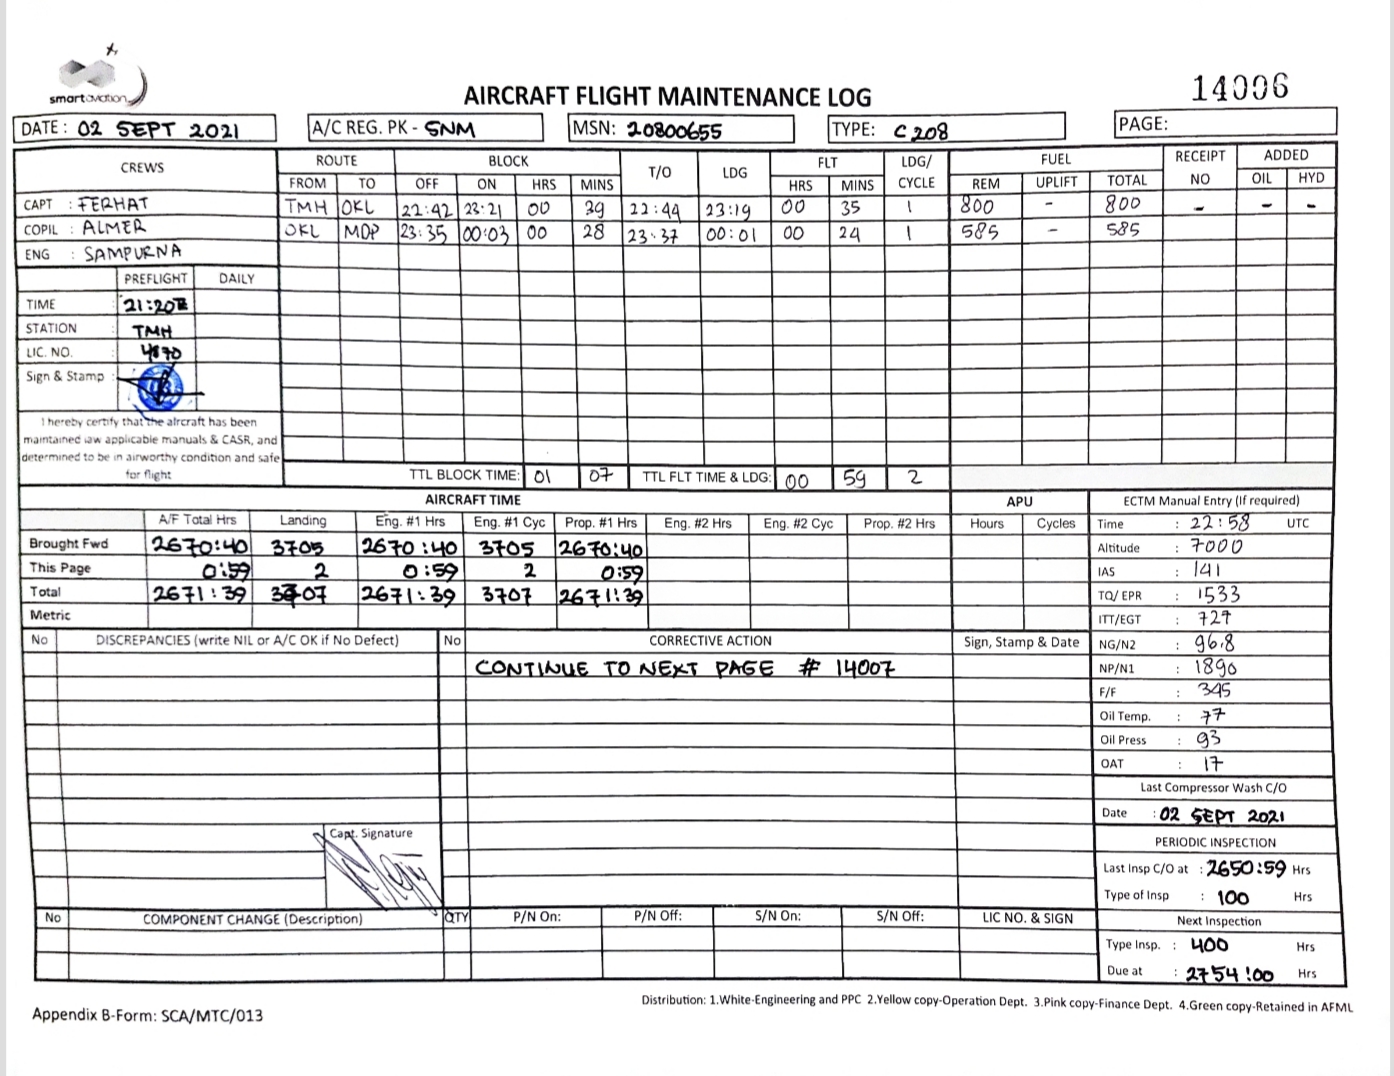 smartaviation
AIRCRAFT FLIGHT MAINTENANCE LOG
14006
DATE : 02 SEPT 2021 A/C REG. PK - SNM MSN: 20800655 TYPE: C 208 PAGE:
CREWS ROUTE BLOCK T/O LDG FLT LDG/ CYCLE FUEL RECEIPT NO ADDED
FROM TO OFF ON HRS MINS HRS MINS REM UPLIFT TOTAL OIL HYD
CAPT : FERHAT TMH OKL 22:42 23:21 00 39 22:44 23:19 00 35 1 800 - 800 - - -
COPIL : ALMER OKL MOP 23:35 00:03 00 28 23:37 00:01 00 24 1 585 - 585
ENG : SAMPURNA
PREFLIGHT DAILY
TIME : 21:20
STATION : TMH
LIC. NO. : 4870
Sign & Stamp :
I hereby certify that the aircraft has been
maintained iaw applicable manuals & CASR, and
determined to be in airworthy condition and safe
for flight
TTL BLOCK TIME: 01 07 TTL FLT TIME & LDG: 00 59 2
AIRCRAFT TIME APU ECTM Manual Entry (If required)
A/F Total Hrs Landing Eng. #1 Hrs Eng. #1 Cyc Prop. #1 Hrs Eng. #2 Hrs Eng. #2 Cyc Prop. #2 Hrs Hours Cycles Time : 22:58 UTC
Brought Fwd 2670:40 3705 2670:40 3705 2670:40 Altitude : 7000
This Page 0:59 2 0:59 2 0:59 IAS : 141
Total 2671:39 3707 2671:39 3707 2671:39 TQ/ EPR : 1533
Metric ITT/EGT : 727
No DISCREPANCIES (write NIL or A/C OK if No Defect) No CORRECTIVE ACTION Sign, Stamp & Date NG/N2 : 96.8
CONTINUE TO NEXT PAGE # 14007 NP/N1 : 1890
F/F : 345
Oil Temp. : 77
Oil Press : 93
OAT : 17
Last Compressor Wash C/O
Date : 02 SEPT 2021
Capt. Signature
PERIODIC INSPECTION
Last Insp C/O at : 2650:59 Hrs
Type of Insp : 100 Hrs
No COMPONENT CHANGE (Description) QTY P/N On: P/N Off: S/N On: S/N Off: LIC NO. & SIGN Next Inspection
Type Insp. : 400 Hrs
Due at : 2754:00 Hrs
Distribution: 1.White-Engineering and PPC 2.Yellow copy-Operation Dept. 3.Pink copy-Finance Dept. 4.Green copy-Retained in AFML
Appendix B-Form: SCA/MTC/013